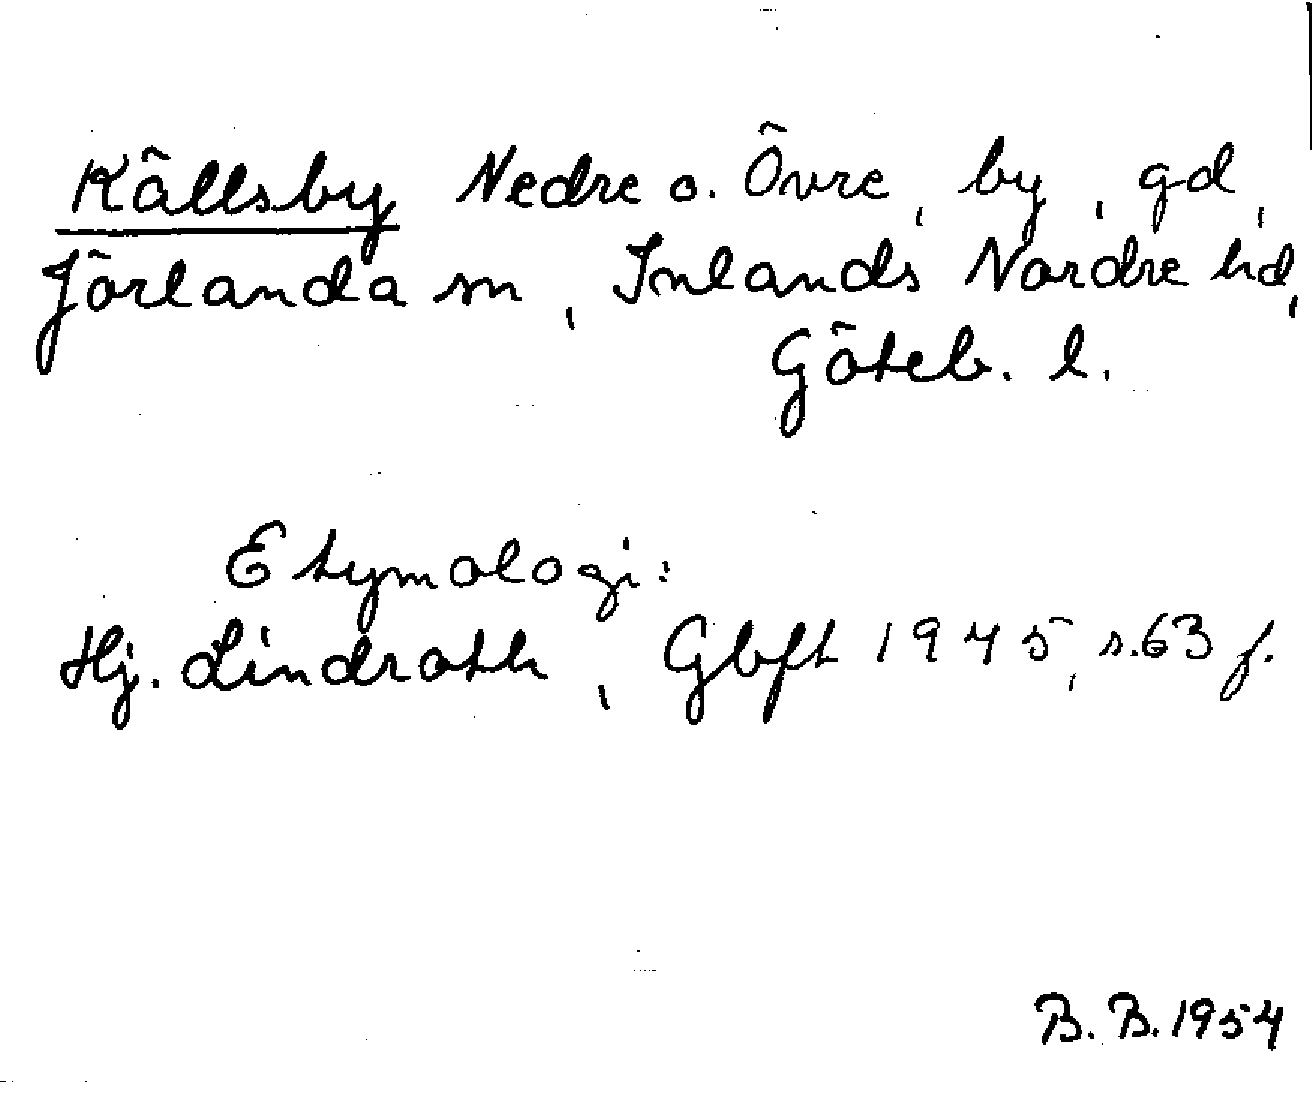 Källsby Nedre o. Övre, by, gd,
Jörlanda sn, Inlands Nordre hd,
Göteb. l.
Etymologi:
Hj. Lindroth, Gbft 1945, s. 63 f.
B. B. 1954